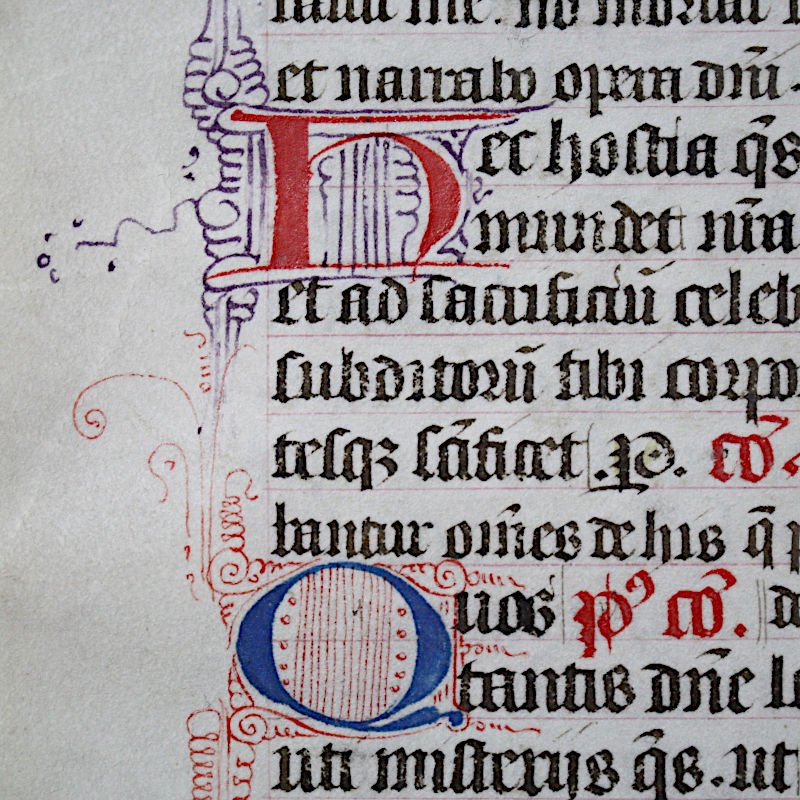 et narrabo opera dn̄i.
Hec hostia q̄s
mundet nr̄a
et ad sacrificiū celeb
subditorū tibi corpo
tesqꝫ sc̄ificet. p̄d. cō
bantur om̄es de his q̄ p
Quos pꝰ cō. d
tantis dn̄e le
uti misterijs q̄s. ut